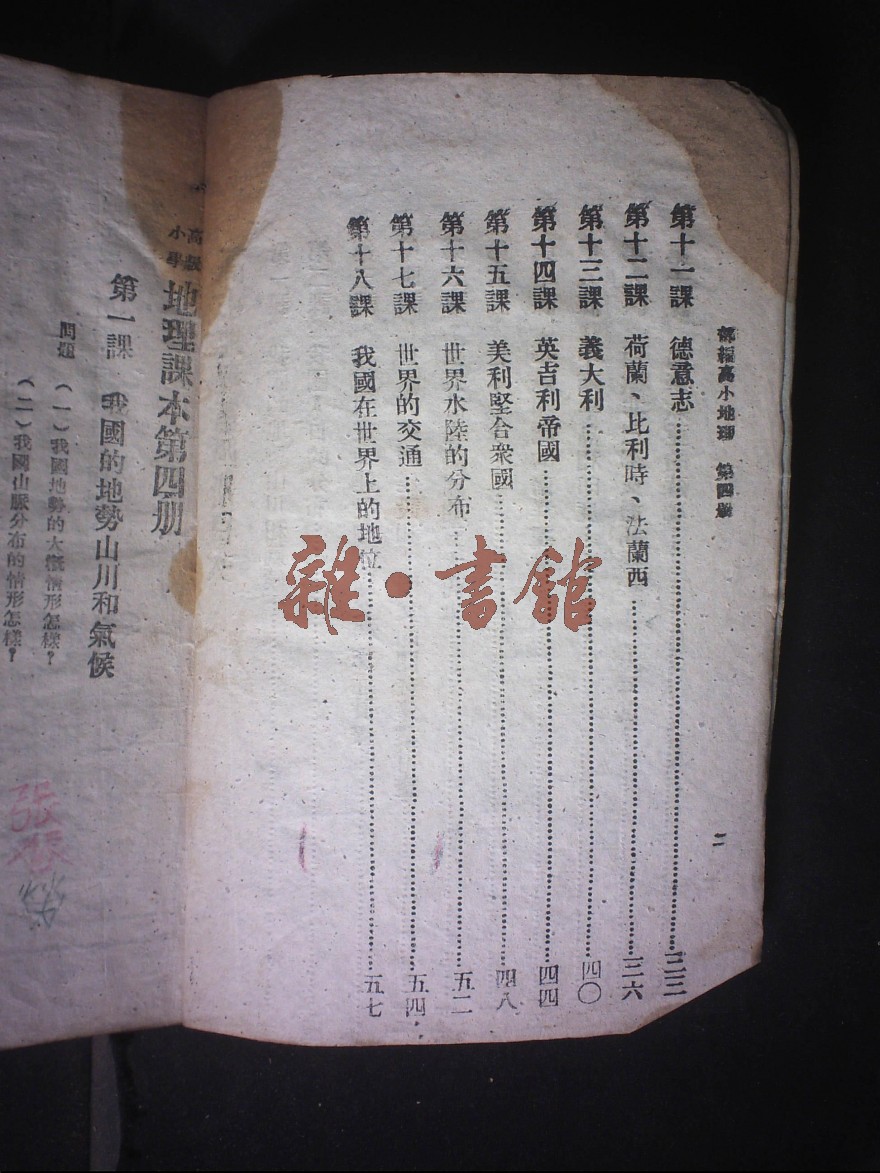 部編高小地理 第四册
二
第十一課 德意志 三二
第十二課 荷蘭、比利時、法蘭西 三六
第十三課 義大利 四〇
第十四課 英吉利帝國 四四
第十五課 美利堅合衆國 四八
第十六課 世界水陸的分布 五二
第十七課 世界的交通 五四
第十八課 我國在世界上的地位 五七
雜·書館
高級小學 地理課本第四册
第一課 我國的地勢山川和氣候
問題 (一)我國地勢的大概情形怎樣?
(二)我國山脈分布的情形怎樣?
張